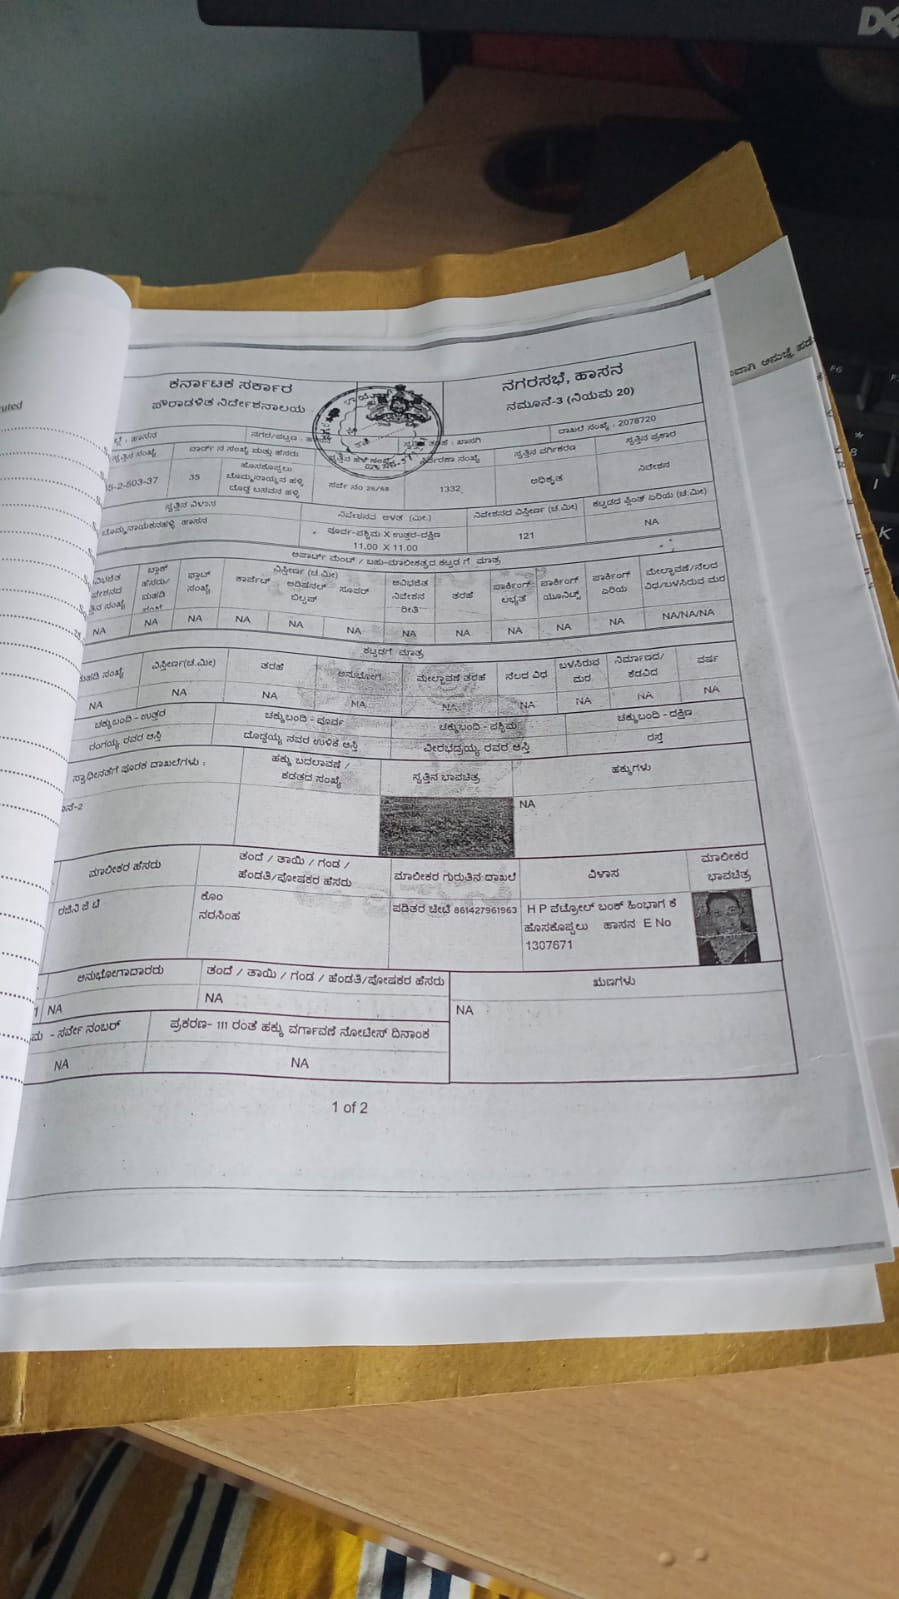 DE
F6
K
I
ಕರ್ನಾಟಕ ಸರ್ಕಾರ
ಪೌರಾಡಳಿತ ನಿರ್ದೇಶನಾಲಯ
ನಗರಸಭೆ, ಹಾಸನ
ನಮೂನೆ-3 (ನಿಯಮ 20)
: ಹಾಸನ ನಗರ/ಪಟ್ಟಣ : ದಾಖಲೆ ಸಂಖ್ಯೆ : 2078720
ಸ್ವತ್ತಿನ ಸಂಖ್ಯೆ ವಾರ್ಡ್ ನ ಸಂಖ್ಯೆ ಮತ್ತು ಹೆಸರು ಸಂಖ್ಯೆ ಸ್ವತ್ತಿನ ವರ್ಗೀಕರಣ ಸ್ವತ್ತಿನ ಪ್ರಕಾರ
5-2-503-37 35 ಹೊಸಕೊಪ್ಪಲು ಬೊಮ್ಮನಾಯ್ಕನ ಹಳ್ಳಿ ದೊಡ್ಡ ಬಸವನ ಹಳ್ಳಿ ಸರ್ವೆ ನಂ 1332 ಅಧಿಕೃತ ನಿವೇಶನ
ಸ್ವತ್ತಿನ ವಿಳಾಸ ನಿವೇಶನದ ಅಳತೆ (ಮೀ.) ನಿವೇಶನದ ವಿಸ್ತೀರ್ಣ (ಚ.ಮೀ) ಕಟ್ಟಡದ ಪ್ಲಿಂತ್ ಏರಿಯ (ಚ.ಮೀ)
ಬೊಮ್ಮನಾಯಕನಹಳ್ಳಿ ಹಾಸನ ಪೂರ್ವ-ಪಶ್ಚಿಮ X ಉತ್ತರ-ದಕ್ಷಿಣ 121 NA
11.00 X 11.00
ಅಪಾರ್ಟ್ ಮೆಂಟ್ / ಬಹು-ಮಾಲೀಕತ್ವದ ಕಟ್ಟಡಗೆ ಮಾತ್ರ
ಬ್ಲಾಕ್ ಹೆಸರು/ ಮಹಡಿ ಸಂಖ್ಯೆ ಫ್ಲಾಟ್ ಸಂಖ್ಯೆ ವಿಸ್ತೀರ್ಣ (ಚ.ಮೀ) ಅವಿಭಜಿತ ನಿವೇಶನ ರೀತಿ ತರಹೆ ಪಾರ್ಕಿಂಗ್ ಲಭ್ಯತೆ ಪಾರ್ಕಿಂಗ್ ಯೂನಿಟ್ಸ್ ಪಾರ್ಕಿಂಗ್ ಏರಿಯ ಮೇಲ್ಛಾವಣಿ/ನೆಲದ ವಿಧ/ಬಳಸಿರುವ ಮರ
ಕಾರ್ಪೆಟ್ ಅಡಿಷನಲ್ ಬಿಲ್ಟಪ್ ಸೂಪರ್
NA NA NA NA NA NA NA NA NA NA NA NA/NA/NA
ಕಟ್ಟಡಗೆ ಮಾತ್ರ
ಮಹಡಿ ಸಂಖ್ಯೆ ವಿಸ್ತೀರ್ಣ(ಚ.ಮೀ) ತರಹೆ ಅನುಭೋಗ ಮೇಲ್ಛಾವಣಿ ತರಹೆ ನೆಲದ ವಿಧ ಬಳಸಿರುವ ಮರ ನಿರ್ಮಾಣದ/ ಕಡವಿದ ವರ್ಷ
NA NA NA NA NA NA NA NA NA
ಚಕ್ಕುಬಂದಿ - ಉತ್ತರ ಚಕ್ಕುಬಂದಿ - ಪೂರ್ವ ಚಕ್ಕುಬಂದಿ - ಪಶ್ಚಿಮ ಚಕ್ಕುಬಂದಿ - ದಕ್ಷಿಣ
ರಂಗಯ್ಯ ರವರ ಆಸ್ತಿ ದೊಡ್ಡಯ್ಯ ನವರ ಉಳಿಕೆ ಆಸ್ತಿ ವೀರಭದ್ರಯ್ಯ ರವರ ಆಸ್ತಿ ರಸ್ತೆ
ಸ್ವಾಧೀನತೆಗೆ ಪೂರಕ ದಾಖಲೆಗಳು : ಹಕ್ಕು ಬದಲಾವಣೆ / ಕಡತದ ಸಂಖ್ಯೆ ಸ್ವತ್ತಿನ ಭಾವಚಿತ್ರ ಹಕ್ಕುಗಳು
NA
ಮಾಲೀಕರ ಹೆಸರು ತಂದೆ / ತಾಯಿ / ಗಂಡ / ಹೆಂಡತಿ/ಪೋಷಕರ ಹೆಸರು ಮಾಲೀಕರ ಗುರುತಿನ ದಾಖಲೆ ವಿಳಾಸ ಮಾಲೀಕರ ಭಾವಚಿತ್ರ
ರಜಿನಿ ಜೆ ಟಿ ಕೋಂ ನರಸಿಂಹ ಪಡಿತರ ಚೀಟಿ 861427961963 H P ಪೆಟ್ರೋಲ್ ಬಂಕ್ ಹಿಂಭಾಗ ಕೆ
ಹೊಸಕೊಪ್ಪಲು ಹಾಸನ E No
1307671
ಅನುಭೋಗಾದಾರರು ತಂದೆ / ತಾಯಿ / ಗಂಡ / ಹೆಂಡತಿ/ಪೋಷಕರ ಹೆಸರು ಋಣಗಳು
1 NA NA NA
- ಸರ್ವೇ ನಂಬರ್ ಪ್ರಕರಣ- 111 ರಂತೆ ಹಕ್ಕು ವರ್ಗಾವಣೆ ನೋಟೀಸ್ ದಿನಾಂಕ
NA NA
1 of 2